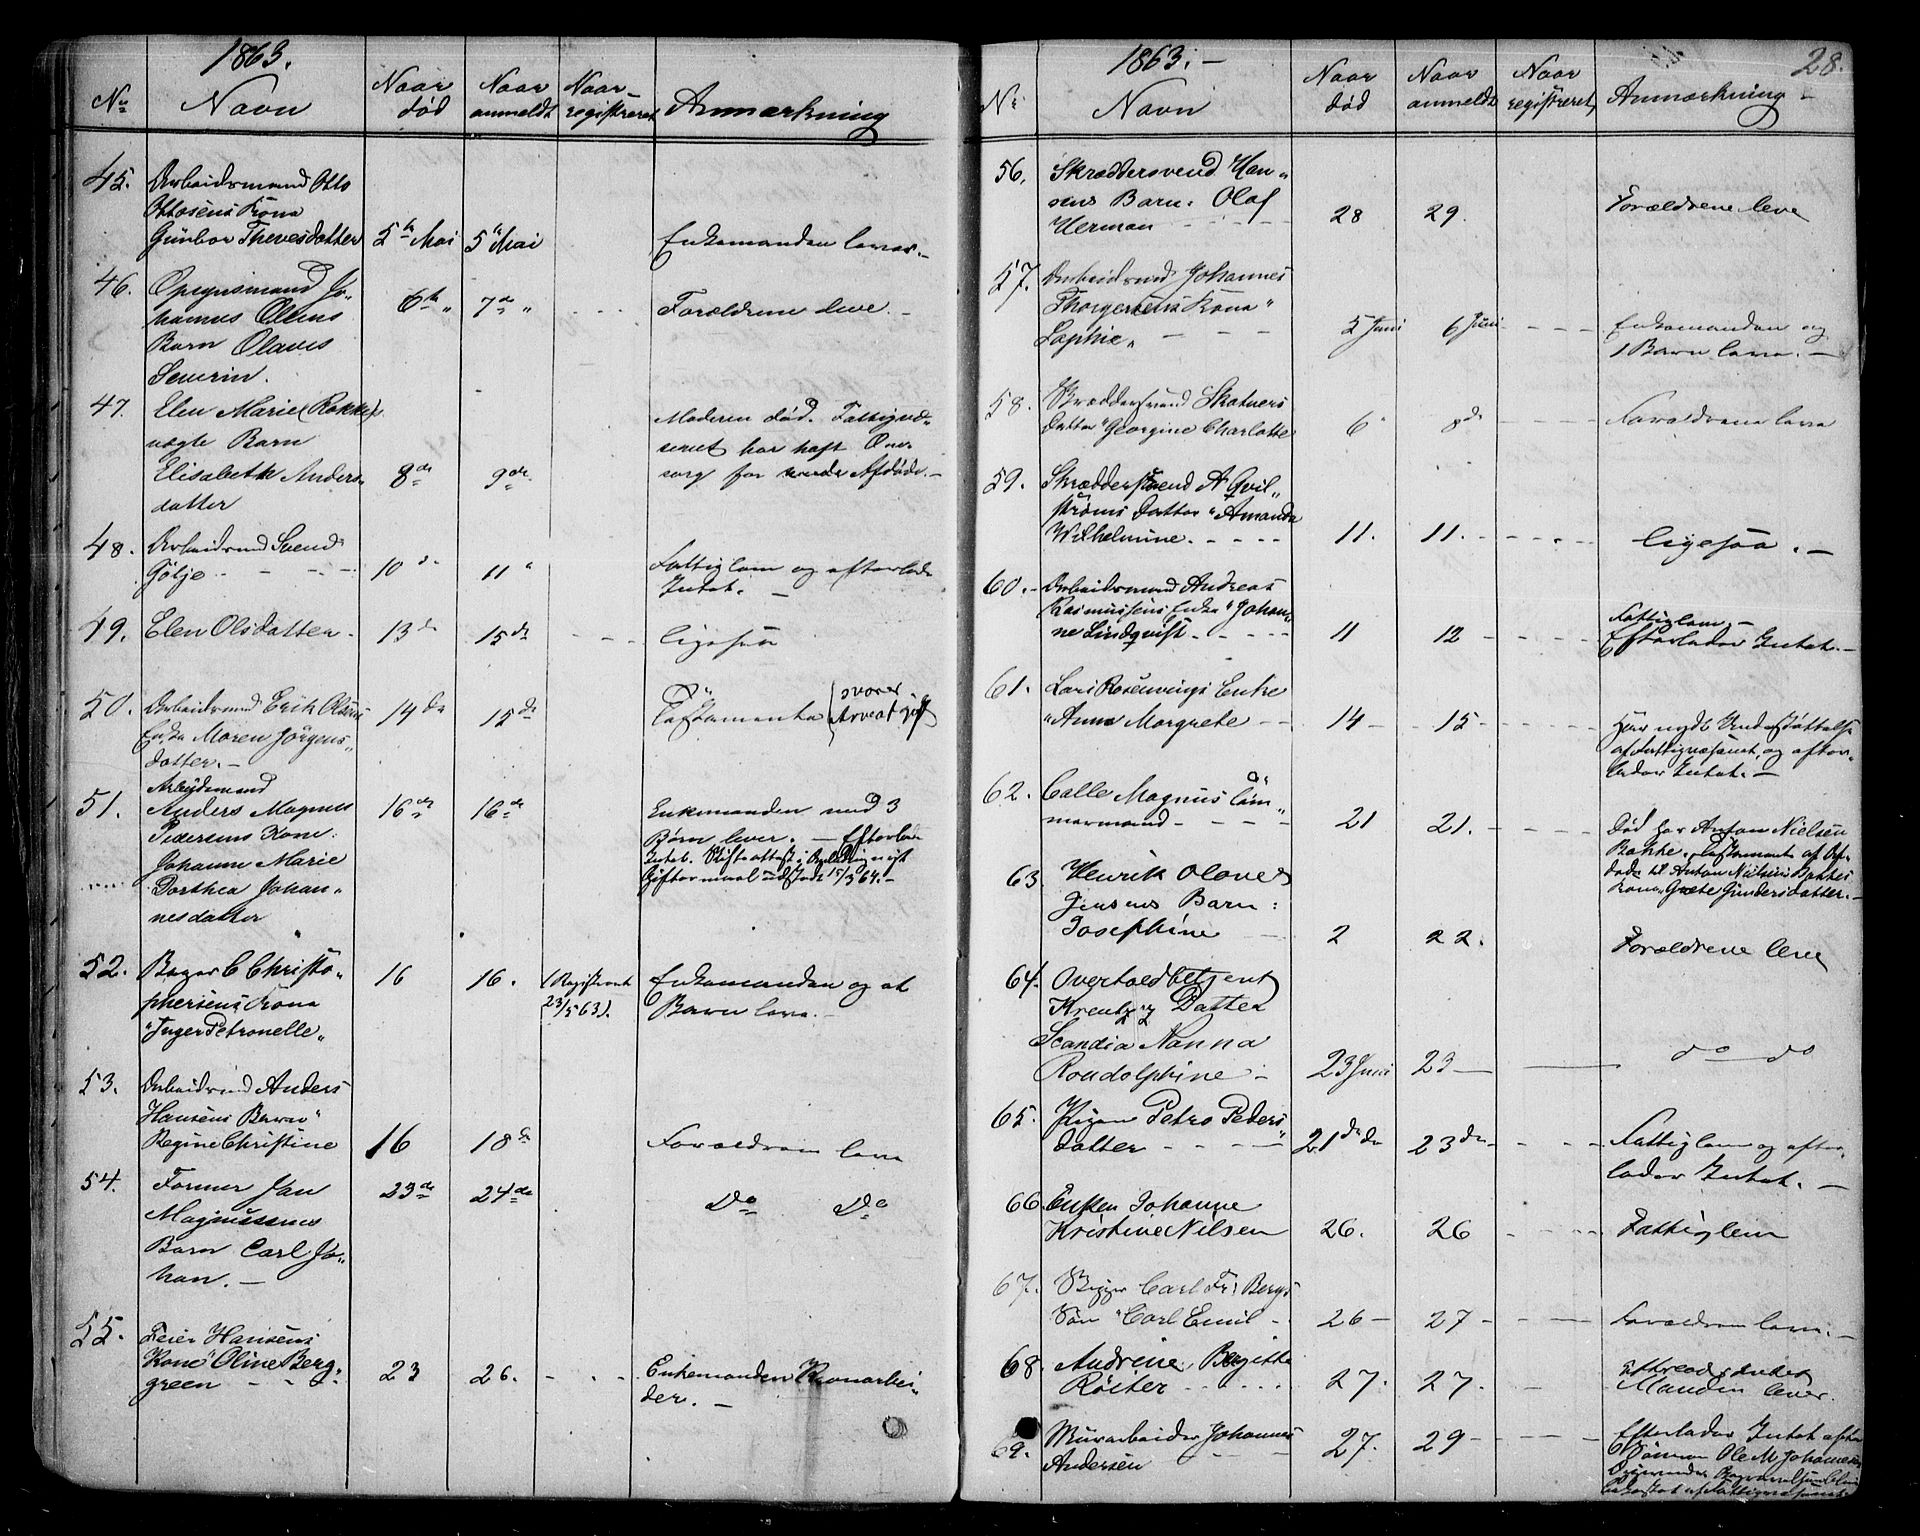 1863.
No Navn Naar død Naar anmeldt Naar registreret Anmærkning
45. Arbeidsmand Otto
Ottosens Kone
Gunbor Thevesdatter 5te Mai 5te Mai Enkemanden lever.-
46. Opsynsmand Jo-
hannes Olsens 6te " 7de " Forældrene leve.-
Barn Olaves
Severin.
47. Elen Marie (Rokke)s
uægte Barn
Elisabeth Anders-
datter 8de 9de
Moderen død. Fattigvæ-
senet har haft Om-
sorg for Afdøde.-
48. Arbeidsmd Svend
Götje 10de 11 "
Fattiglem og efterlader
Intet.-
49. Elen Olsdatter 13de 15de ligesaa
50. Arbeidsmd Erik Olsens
Enke Maren Jörgens-
datter.- 14de 15de Testamente (svarer Arveafgift
51. Arbeidsmand
Anders Magnus
Pedersens Kone:
Johanne Marie
Dorthea Johan-
nesdatter 16de 16de
Enkemanden med 3
Børn lever.- Efterlader
Intet. Skifteattest i Anledning nyt
Giftermaal udstedt 15/3 64.-
52. Bager C Christo-
phersens Kone
"Inger Petronelle" 16 16. (Registreret 23/5 63).
Enkemanden og et
Barn leve.-
53. Arbeidsmd Anders
Hansens Barn"
Regine Christine 16 18de Forældrene leve
54. Former Jan
Magnussens
Barn Carl Jo-
han.- 23de 24de Do Do
55. Feier Hansens
Kone "Oline Berg-
green 23 26. Enkemanden Kronarbei-
der.-
28.
1863.-
Nr Navn Naar død Naar anmeldt Naar registreret Anmærkning
56. Skræddersvend Han-
sens Barn: Olaf
Herman 28 29. Forældrene leve
57. Arbeidsmd Johannes
Thorgersens Kone"
Sophie" 5 Juni 6 Juni
Enkemanden og
1 Barn leve.-
58. Skræddersvend Skotners
Datter "Georgine Charlotte 6 " 8de Forældrene leve
59. Skræddersvend A Qvil-
strøms Datter "Amanda
Wilhelmine. 11. 11. ligesaa.-
60. Arbeidsmand Andreas
Rasmussens Enke "Johan-
ne Lindqvist. 11 12
Fattiglem.-
Efterlader Intet.-
61. Lars Rosenvings Enke
"Anne Margrete 14 15
Har nydt Understøttelse
af Fattigvæsenet og efter-
lader Intet.-
62. Calle Magnus Töm-
mermand 21 21.
Død hos Anton Nielsen
Bakke. Testamente af Af-
døde til Anton Nielsens Bakkes
Kone "Grete Gundersdatter.-
63. Henrik Olaves
Jensens Barn:
Josephine 2 22. Forældrene leve
64. Overtoldbetjent
Kreutz's Datter
Scandia Nanna
Roudolphine 23 Juni 23 do do
65. Pigen Petro Peders-
datter 21de do 23de
Fattiglem og efter-
lader Intet.-
66. Enken Johanne
Kristine Nilsen 26. 26 Fattiglem
67. Bygger Carl Fr: Bergs
Søn "Carl Emil 26 27 Forældrene leve.-
68. Andrine Bergitte
Röiter 27. 27.
Efterlader Intet
Manden lever.
69. Murarbeider Johannes
Andersen 27. 29
Efterlader Intet efter
Sønnen Ole M Johannesens